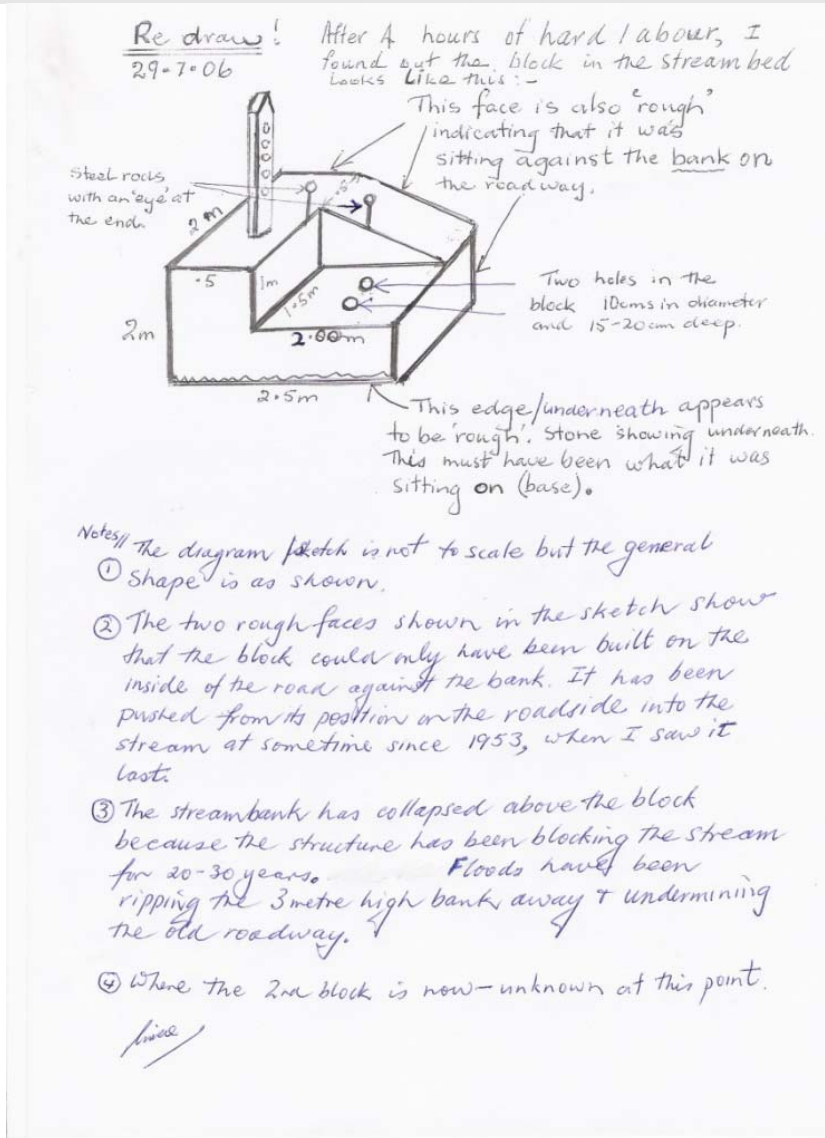 Re draw!
29-7-06
After 4 hours of hard labour, I
found out the block in the stream bed
Looks Like this:-
This face is also 'rough'
indicating that it was
sitting against the bank on
the roadway.
Steel rods
with an 'eye' at
the end.
2m
.5
.5
1m
1.5m
2m
2.00m
2.5m
Two holes in the
block 10cms in diameter
and 15-20cm deep.
This edge/underneath appears
to be 'rough'. Stone showing underneath.
This must have been what it was
sitting on (base).
Notes//
① The diagram/sketch is not to scale but the general
shape is as shown.
② The two rough faces shown in the sketch show
that the block could only have been built on the
inside of the road against the bank. It has been
pushed from its position on the roadside into the
stream at sometime since 1953, when I saw it
last.
③ The streambank has collapsed above the block
because the structure has been blocking the stream
for 20-30 years. Floods have been
ripping the 3 metre high bank away & undermining
the old roadway.
④ Where the 2nd block is now - unknown at this point.